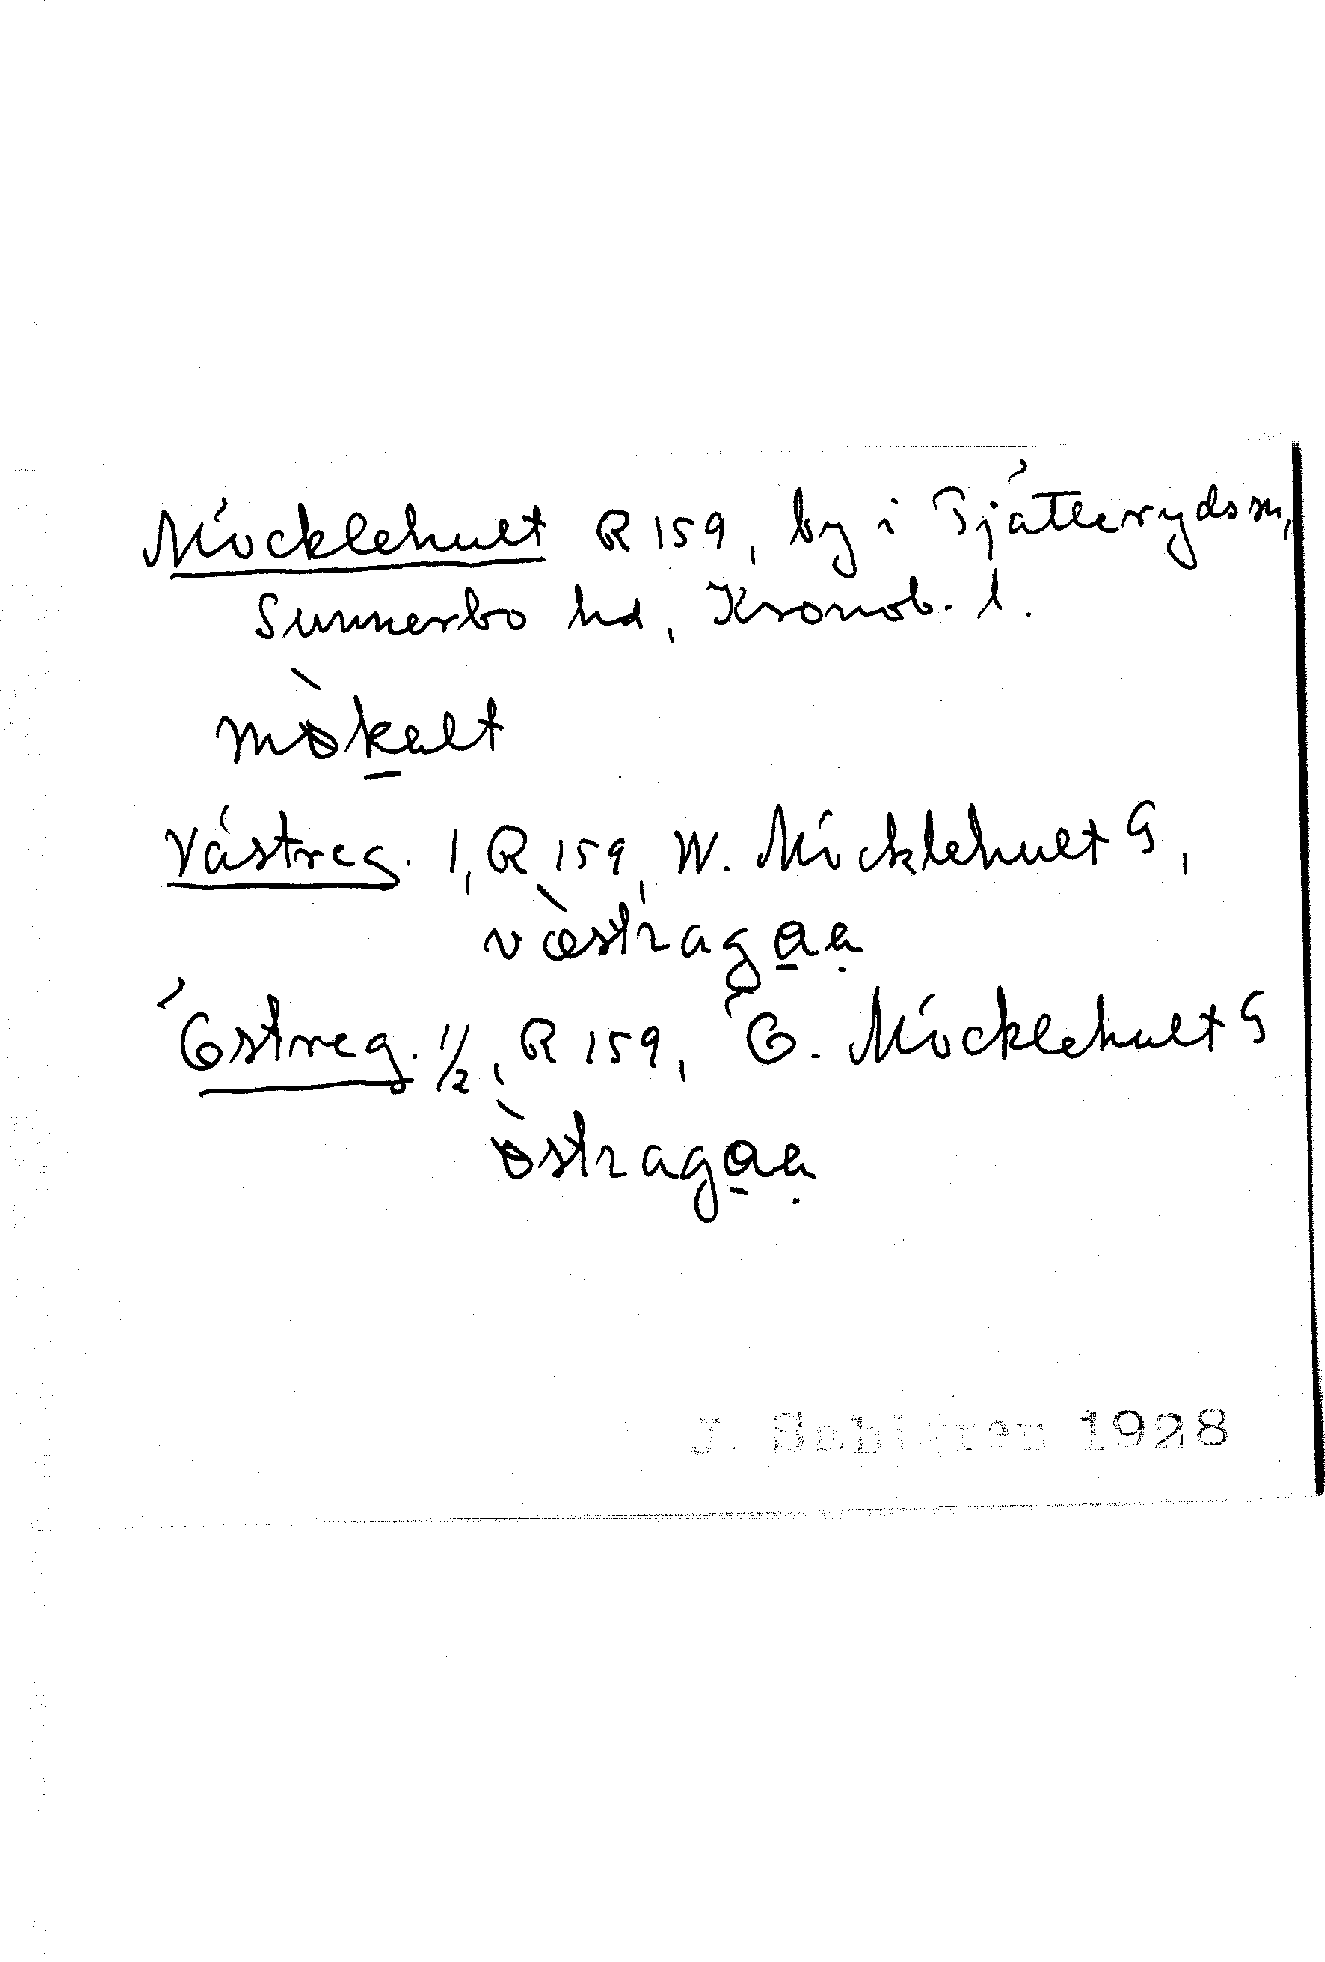 Möcklehult R 159, by i Tjätteryds sn,
Sunnerbo hd, Kronob. l.
mø̀kalt
Västreg. 1, R 159, W. Möcklehult G,
væ̀stragaa
Östreg. 1/2, R 159, Ö. Möcklehult G
ø̀stragaa
J. Sahlgren 1928